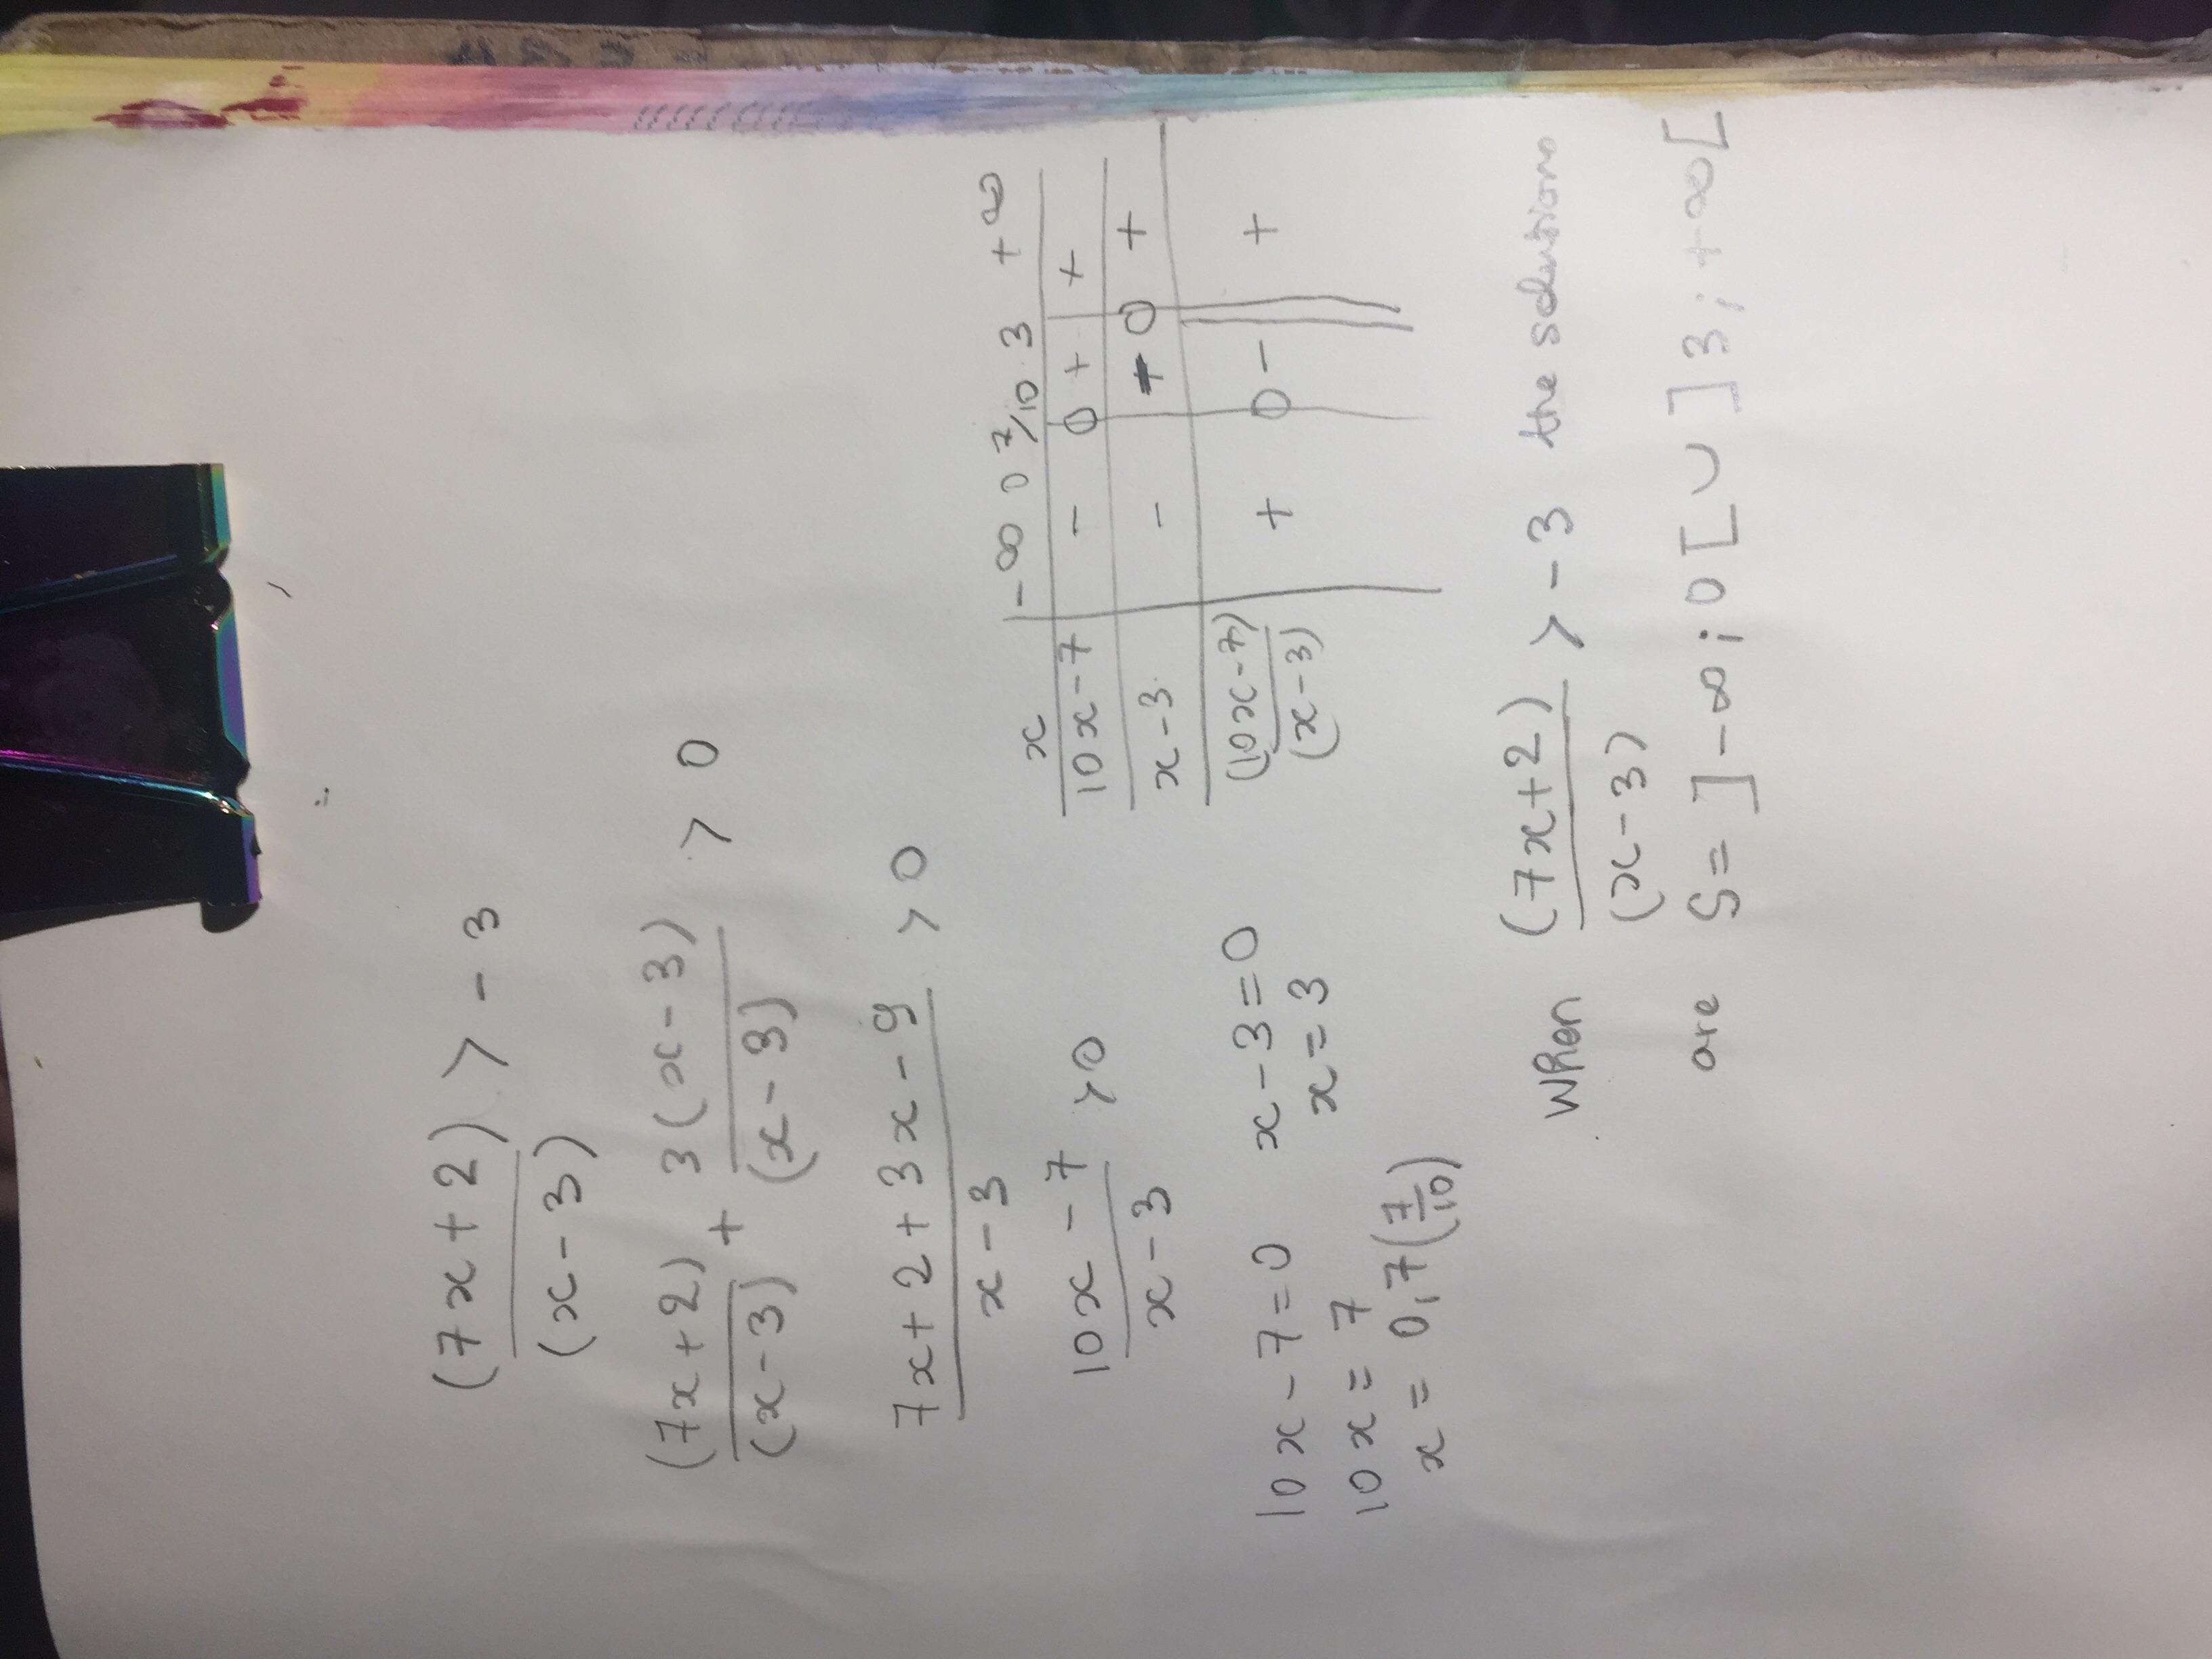 (7x+2) > -3
(x-3)
(7x+2) + 3(x-3) > 0
(x-3) (x-3)
7x+2+3x-9 > 0
x-3
10x-7 > 0
x-3
10x-7=0 x-3=0
10x=7 x=3
x=0,7(7/10)
x -∞ 0 7/10 3 +∞
10x-7 - 0 + +
x-3 - + 0 +
(10x-7) + 0 - +
(x-3)
When (7x+2) > -3 the solutions
(x-3)
are S= ]-∞;0[ ∪ ]3;+∞[